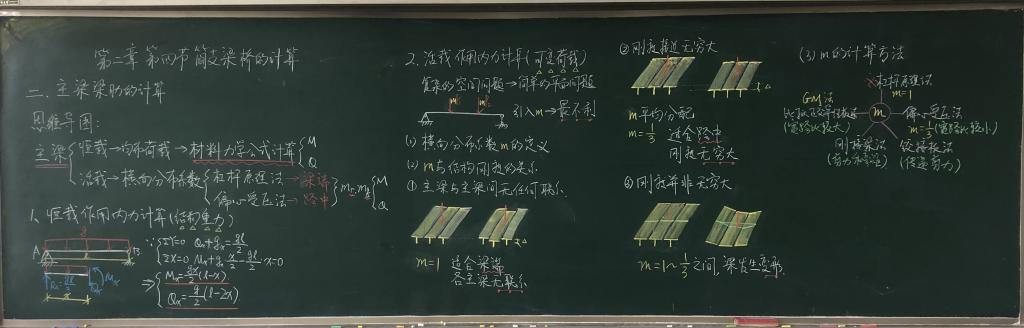 第二章 第四节 简支梁桥的计算
二、主梁梁肋的计算
思维导图:
主梁
恒载→均布荷载→材料力学公式计算 M Q
活载→横向分布系数 杠杆原理法→梁端
偏心受压法→跨中 M Q
1. 恒载作用内力计算(结构重力)
g
A B
∵ ΣY=0 Qx+gx=gl/2
ΣX=0 Mx+gx·x/2-gl/2·x=0
⇒ Mx=gx/2(l-x)
Qx=g/2(l-2x)
Mx
x
2. 活载作用内力计算(可变荷载)
复杂的空间问题→简单的平面问题
引入m→最不利
(1) 横向分布系数m的定义
(2) m与结构刚度的关系
① 主梁与主梁间无任何联系
m=1 适合梁端
各主梁无联系
② 刚度接近无穷大
m平均分配
m=1/3 适合跨中
刚度无穷大
③ 刚度并非无穷大
m=1~1/3之间,梁发生变形.
(3) m的计算方法
杠杆原理法
m=1
GM法
m
偏心受压法
m=1/3(宽跨比较小)
(宽跨比较大)
刚接梁法
铰接板法
(传递剪力)